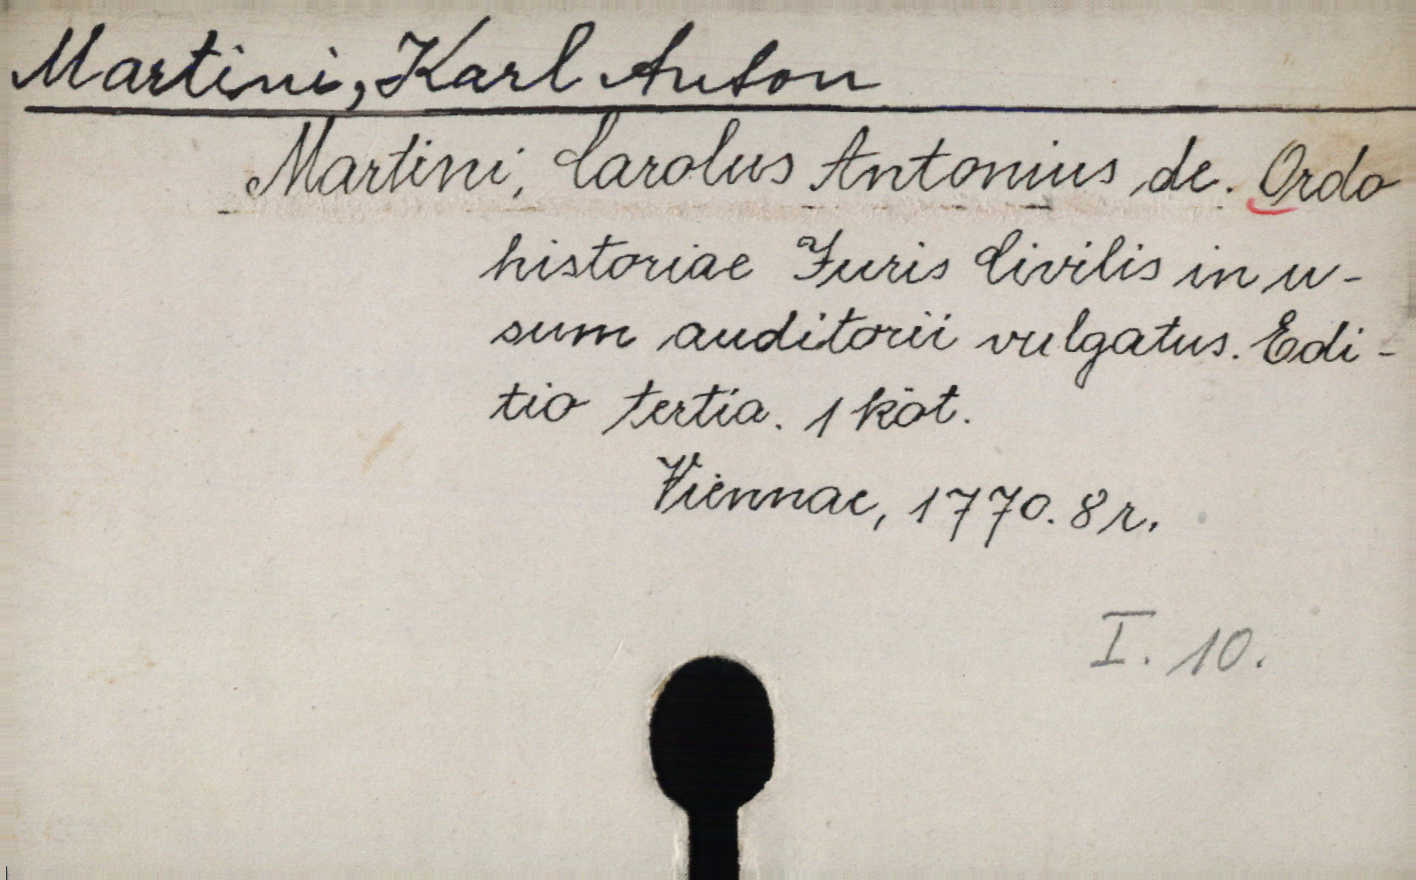 Martini, Karl Anton
Martini, Carolus Antonius de. Ordo
historiae Juris Civilis in u-
sum auditorii vulgatus. Edi-
tio tertia. 1 köt.
Viennae, 1770. 8 r.
I. 10.